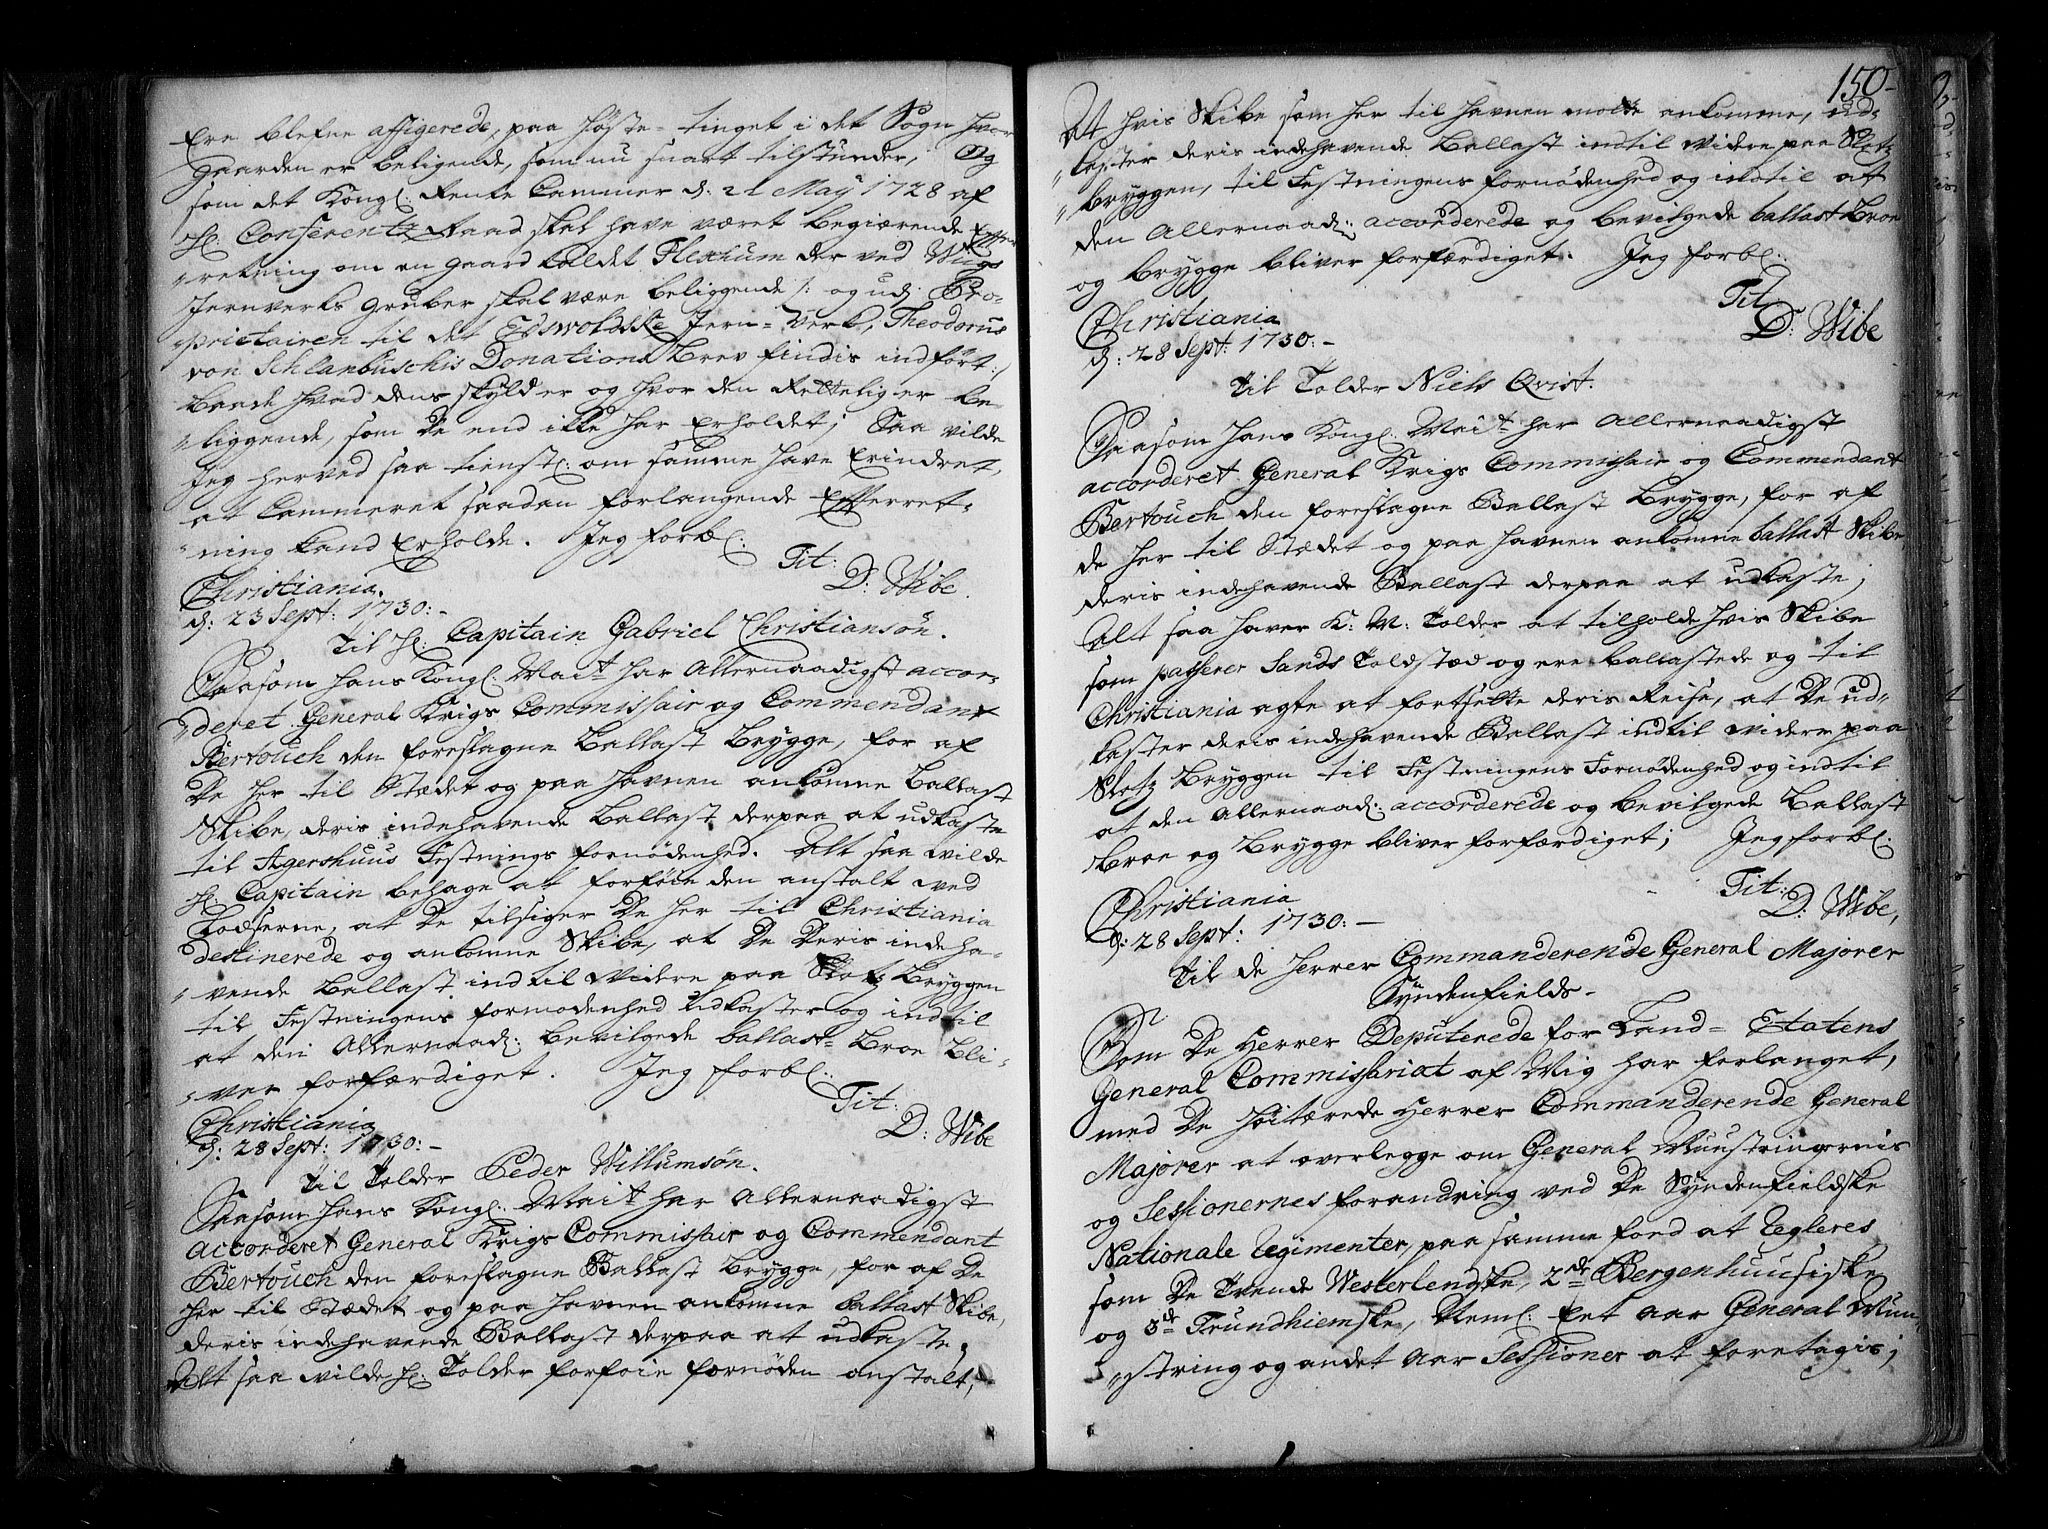 Ere blefne affigerede, paa Høste-tinget i det Sogn hvor
gaarden er beligende, som nu snart tilstunder, Og
som det Kongl: Rente Cammer d: 21 May 1728 af
H: Conferentz Raad skal have været begiærende Effter
"retning om en gaard kaldet Flexum der ved Wiigs
Jernverks gruber skal være beliggende /: og udj Pro-
"prietairen til det Edswoldske Jern-Verk, Theodorus
von Schlanbuschis Donations brev findis indført:/
baade hvad dens skyld er og hvor den Rettelig er be-
"liggende, som De end ikke har Erholdet; Saa vilde
Jeg herved saa tienstl: om samme have Erindret,
at Cammeret saadan forlangende Efterret-
"ning kand Erholde. Jeg forbl:
Tit:
Christiania. D: Wibe.
d: 23 Sept: 1730:-
Til H: Capitain Gabriel Christiansøn.
Saasom Hans Kongl: Mai:t har Allernaadigst accor-
"deret General Krigs Commissair og Commendant
Bertouch den foreslagne Ballast Brygge, for af
De her til Stædet og paa Havnen ankomne Ballast
Skibe, deris indehavende Ballast derpaa at udkaste
til Agershuus Festnings fornødenhed. Alt saa wilde
H: Capitain behage at forføie den anstalt ved
Lodserne, at De tilsiger De her til Christiania
destinerede og ankomne Skibe, at De Deris indeha-
"vende Ballast indtil widre paa Slotz Bryggen
til Festningens fornødenhed udkaster og indtil
at den Allernaad: bevilgede ballast-Broe bli-
"ver forfærdiget. Jeg forbl:
Tit:
Christiania D: Wibe
d: 28 Sept: 1730:-
Til Tolder Peder Willumsøn.
Saasom Hans Kongl: Mai:t har Allernaadigst
accorderet General Krigs Commissair og Commendant
Bertouch den foreslagne Ballast Brygge, for af De
her til Stædet og paa Havnen ankomne ballast Skibe,
deris indehavende Ballast derpaa at udkaste,
Alt saa wilde H: Tolder forføie fornøden anstalt,
150-
At hvis Skibe som her til Havnen motte ankomme, ud-
"kaster deris indehavende Ballast indtil widre paa Slotz
"bryggen, til Festningens fornødenhed og indtil at
den Allernaad: accorderede og bevilgede ballast Broe
og brygge bliver forfærdiget. Jeg forbl:
Tit:
Christiania D: Wibe
d: 28 Sept: 1730:-
Til Tolder Niels Qvist.
Saasom Hans Kongl: Mai:t har Allernaadigst
accorderet General Krigs Commissair og Commendant
Bertouch den foreslagne Ballast Brygge, for af
de her til Stædet og paa Havnen ankomne ballast Skibe
deris indehavende Ballast derpaa at udkaste;
Alt saa haver K: M: Tolder at tilholde hvis Skibe
som passerer Sands Toldstæd og ere ballastede og til
Christiania agte at fortsette deris Reise, at De ud-
kaster deris indehavende Ballast indtil widre paa
Slotz Bryggen til Festningens Fornødenhed og indtil
at den Allernaad: accorderede og bevilgede Ballast
Broe og Brygge bliver forfærdiget; Jeg forbl:
Tit:
Christiania D: Wibe,
d: 28 Sept: 1730:-
Til de Herrer Commanderende General Majorer
Syndenfields-
Som De Herrer Deputerede for Land-Etatens
General Commissariat af Mig har forlanget,
med De Høitærede Herrer Commanderende General
Majorer at overlegge om General Munstringernis
og Sessionernes forandring ved De Syndenfieldske
Nationale Regimenter, paa samme foed at Regleres
som De Trende Westerlenske, 2de Bergenhuusiske
og 3de Trundhiemske, Neml: Eet Aar General Mun-
"string og andet Aar Sessioner at foretagis;